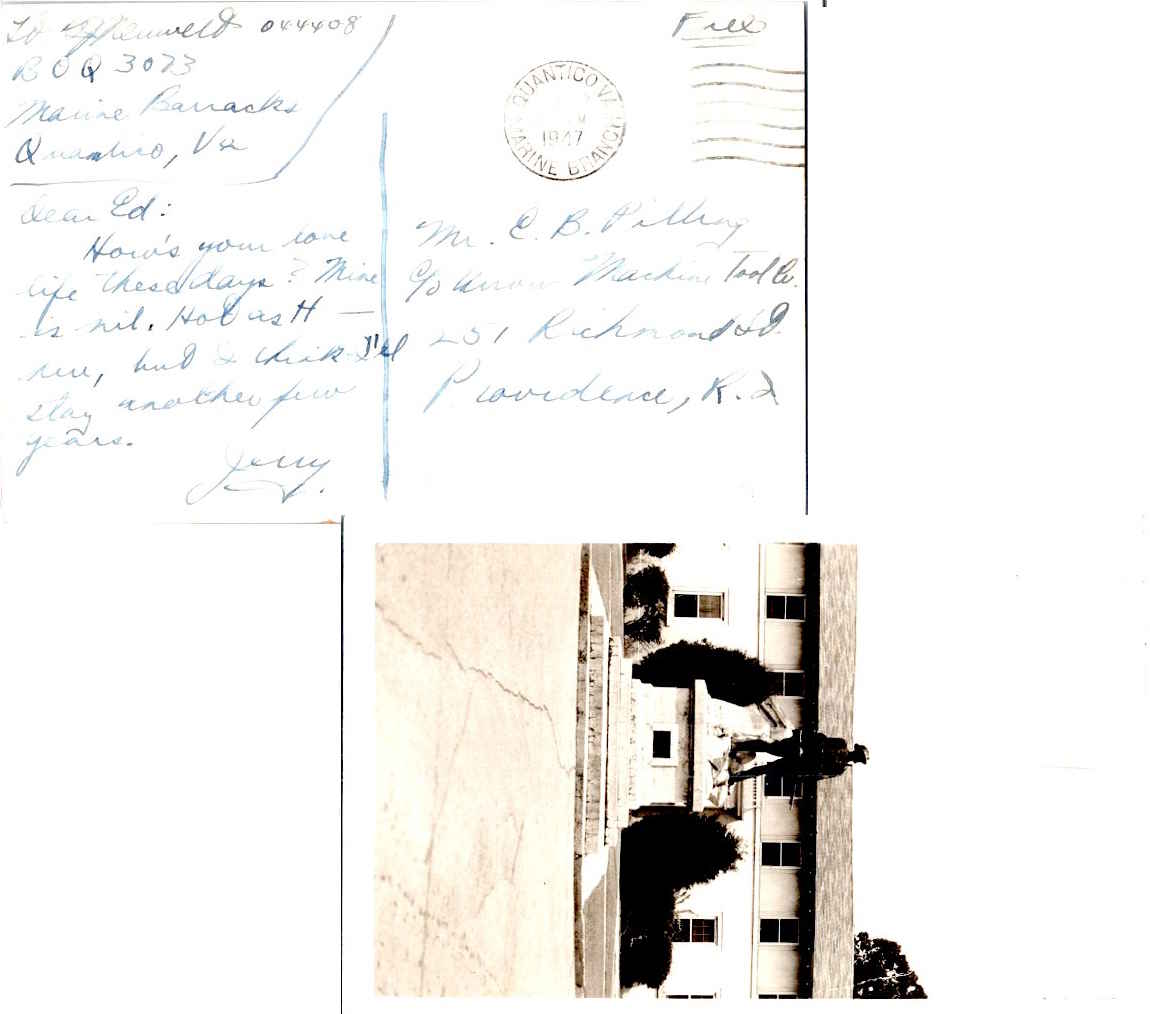 044408
BOQ 3073
Marine Barracks
Quantico, Va
Dear Ed:
How's your love
life these days? Mine
is nil. Hot as H —
here, but I think I'll
stay another few
years.
Jerry
Free
QUANTICO VA.
1947
MARINE BRANCH
Mr. E. B. Pilling
c/o Union Machine Tool Co.
251 Richmond St.
Providence, R.I